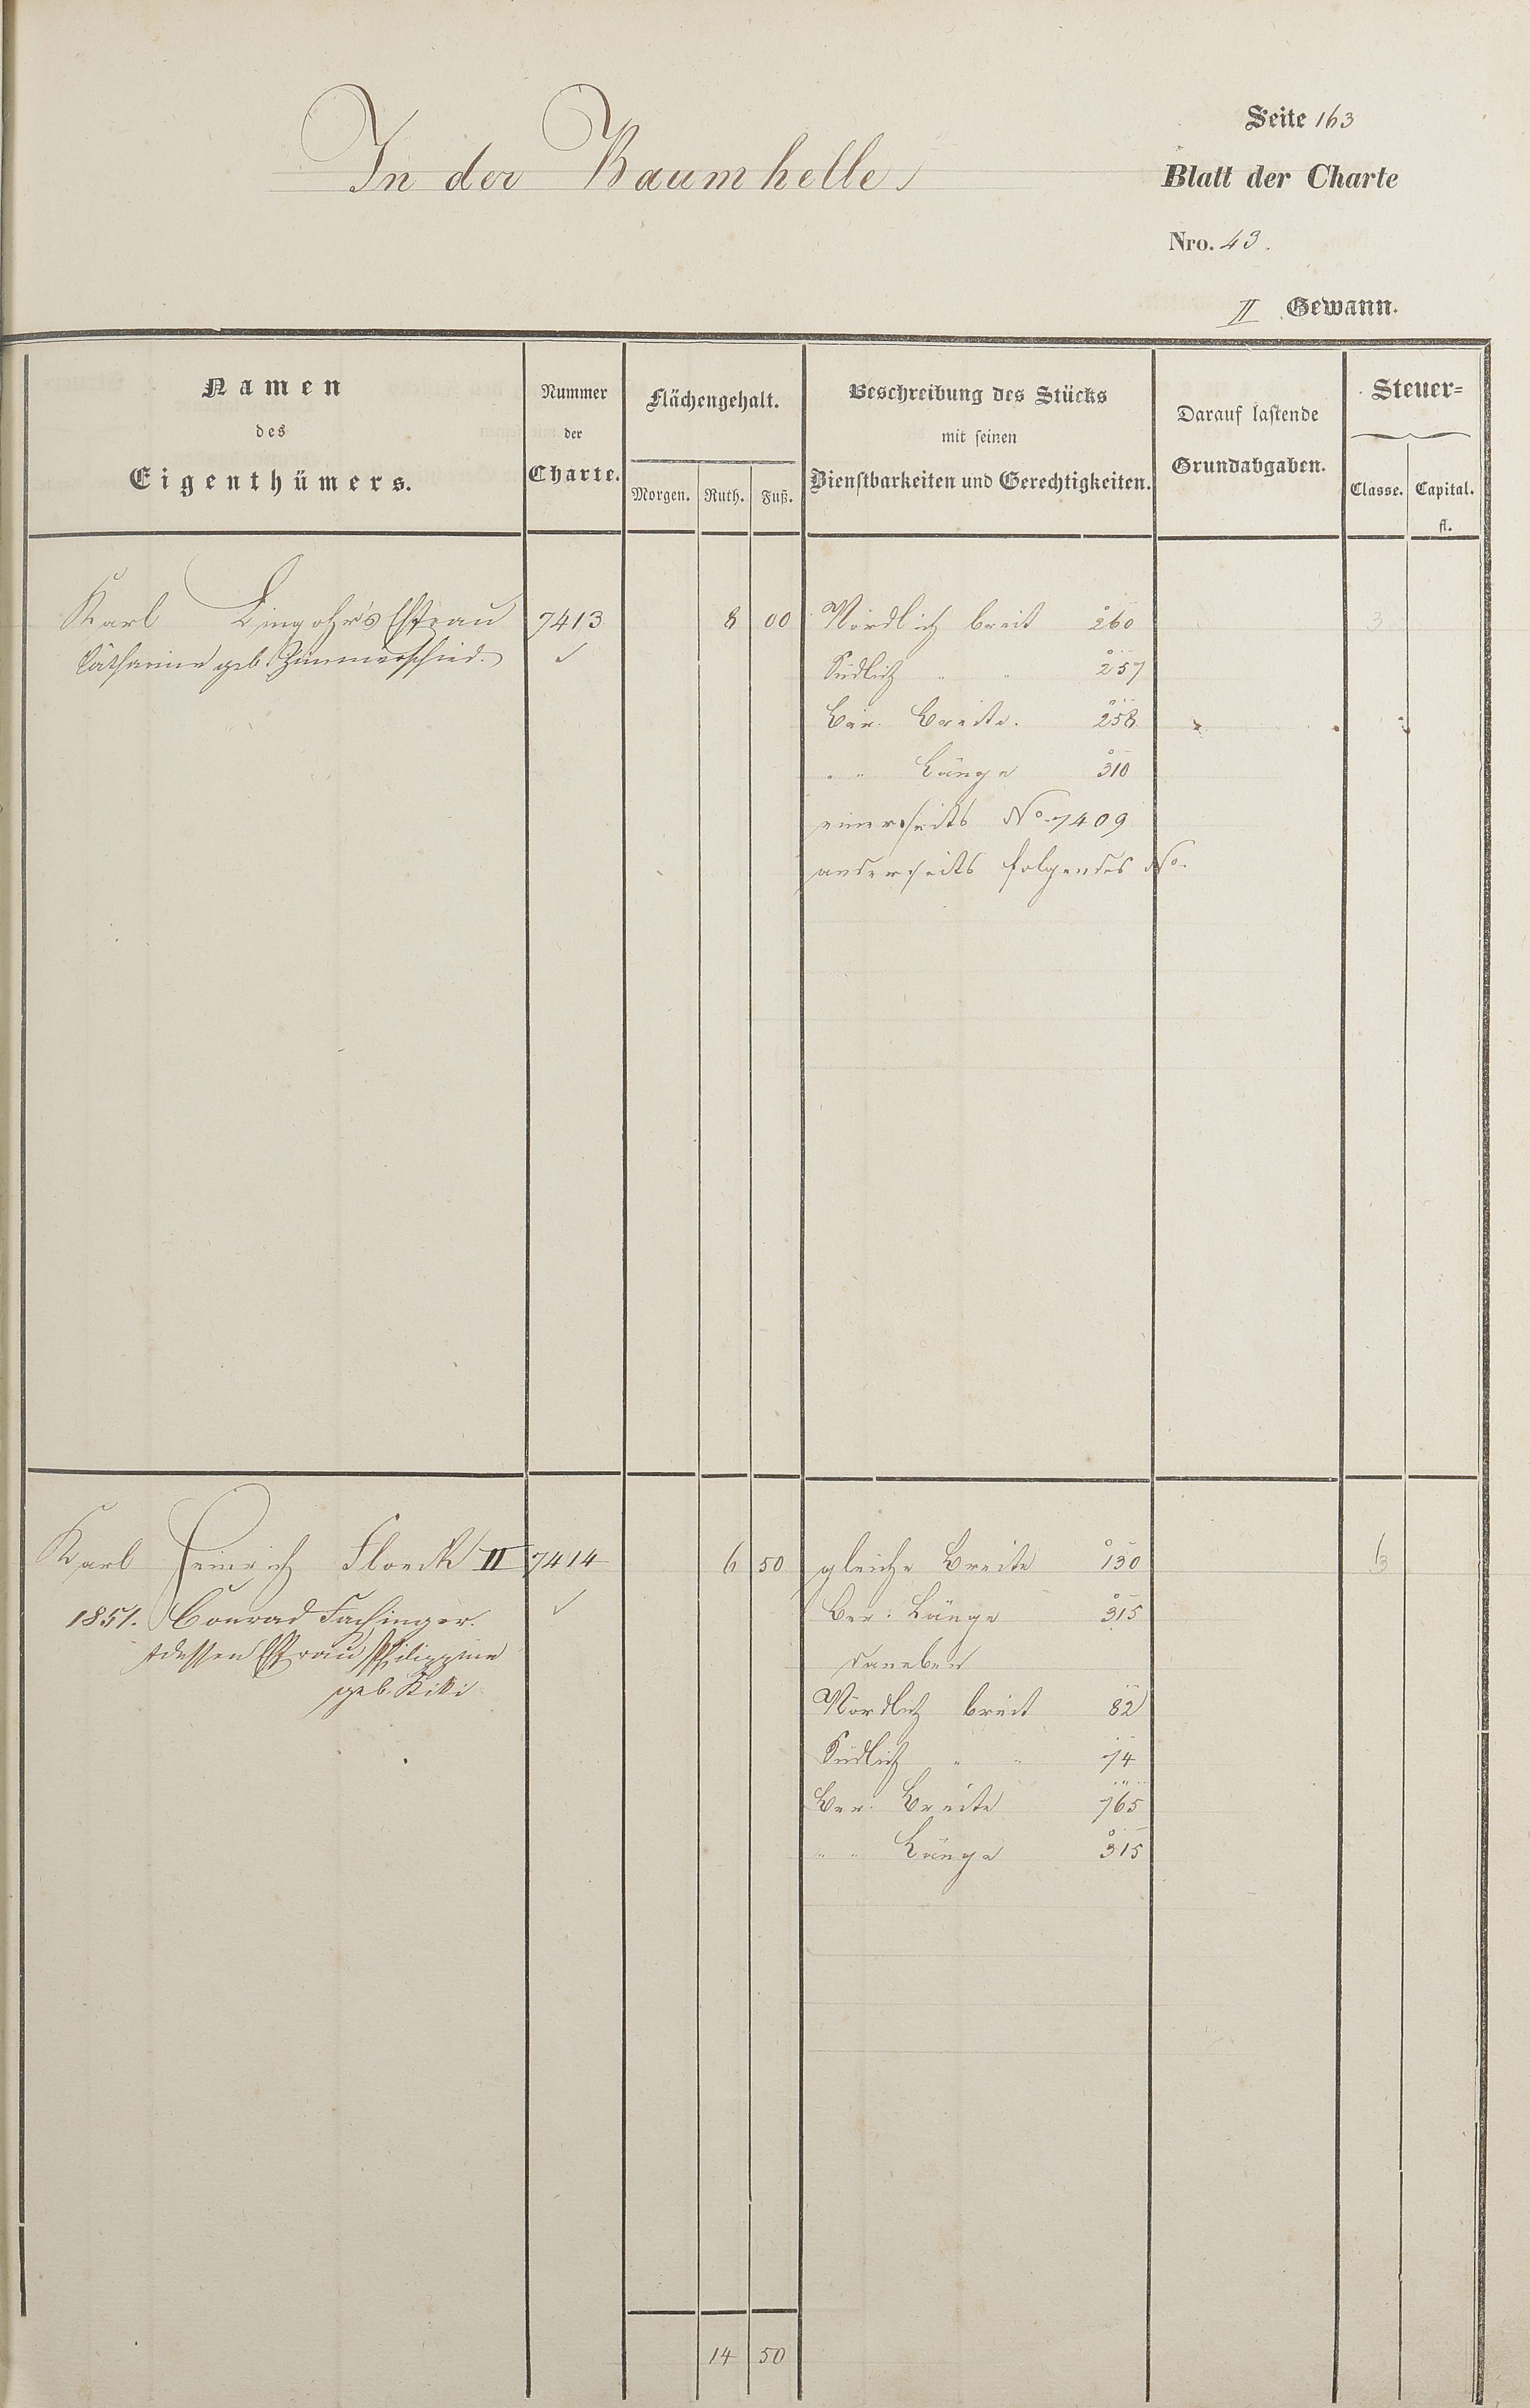 In der Baumhelle
Seite 163
Blatt der Charte
Nro. 43.
II Gewann.
Namen
des
Eigenthümers.
Nummer
der
Charte.
Flächengehalt.
Morgen. Ruth. Fuß.
Beschreibung des Stücks
mit seinen
Dienstbarkeiten und Gerechtigkeiten.
Darauf lastende
Grundabgaben.
Steuer=
Classe. Capital.
fl.
Karl Lingohr's Ehfrau 7413 8 00 Nördlich breit 260 3
Catharine geb. Zimmerschied. ✓ Südlich " " 257
Ber. Breite. 258
" " Länge 310
einerseits No 7409
anderseits folgendes No.
Karl Heinrich Floeck II 7414 6 50 gleiche Breite 130 3
1851. Conrad Fachinger. ✓ Ber: Länge 315
dessen Ehfrau Philippine daneben
geb. Kiki
Nördlich breit 82
Südlich " " 74
Ber. Breite 765
" " Länge 315
14 50